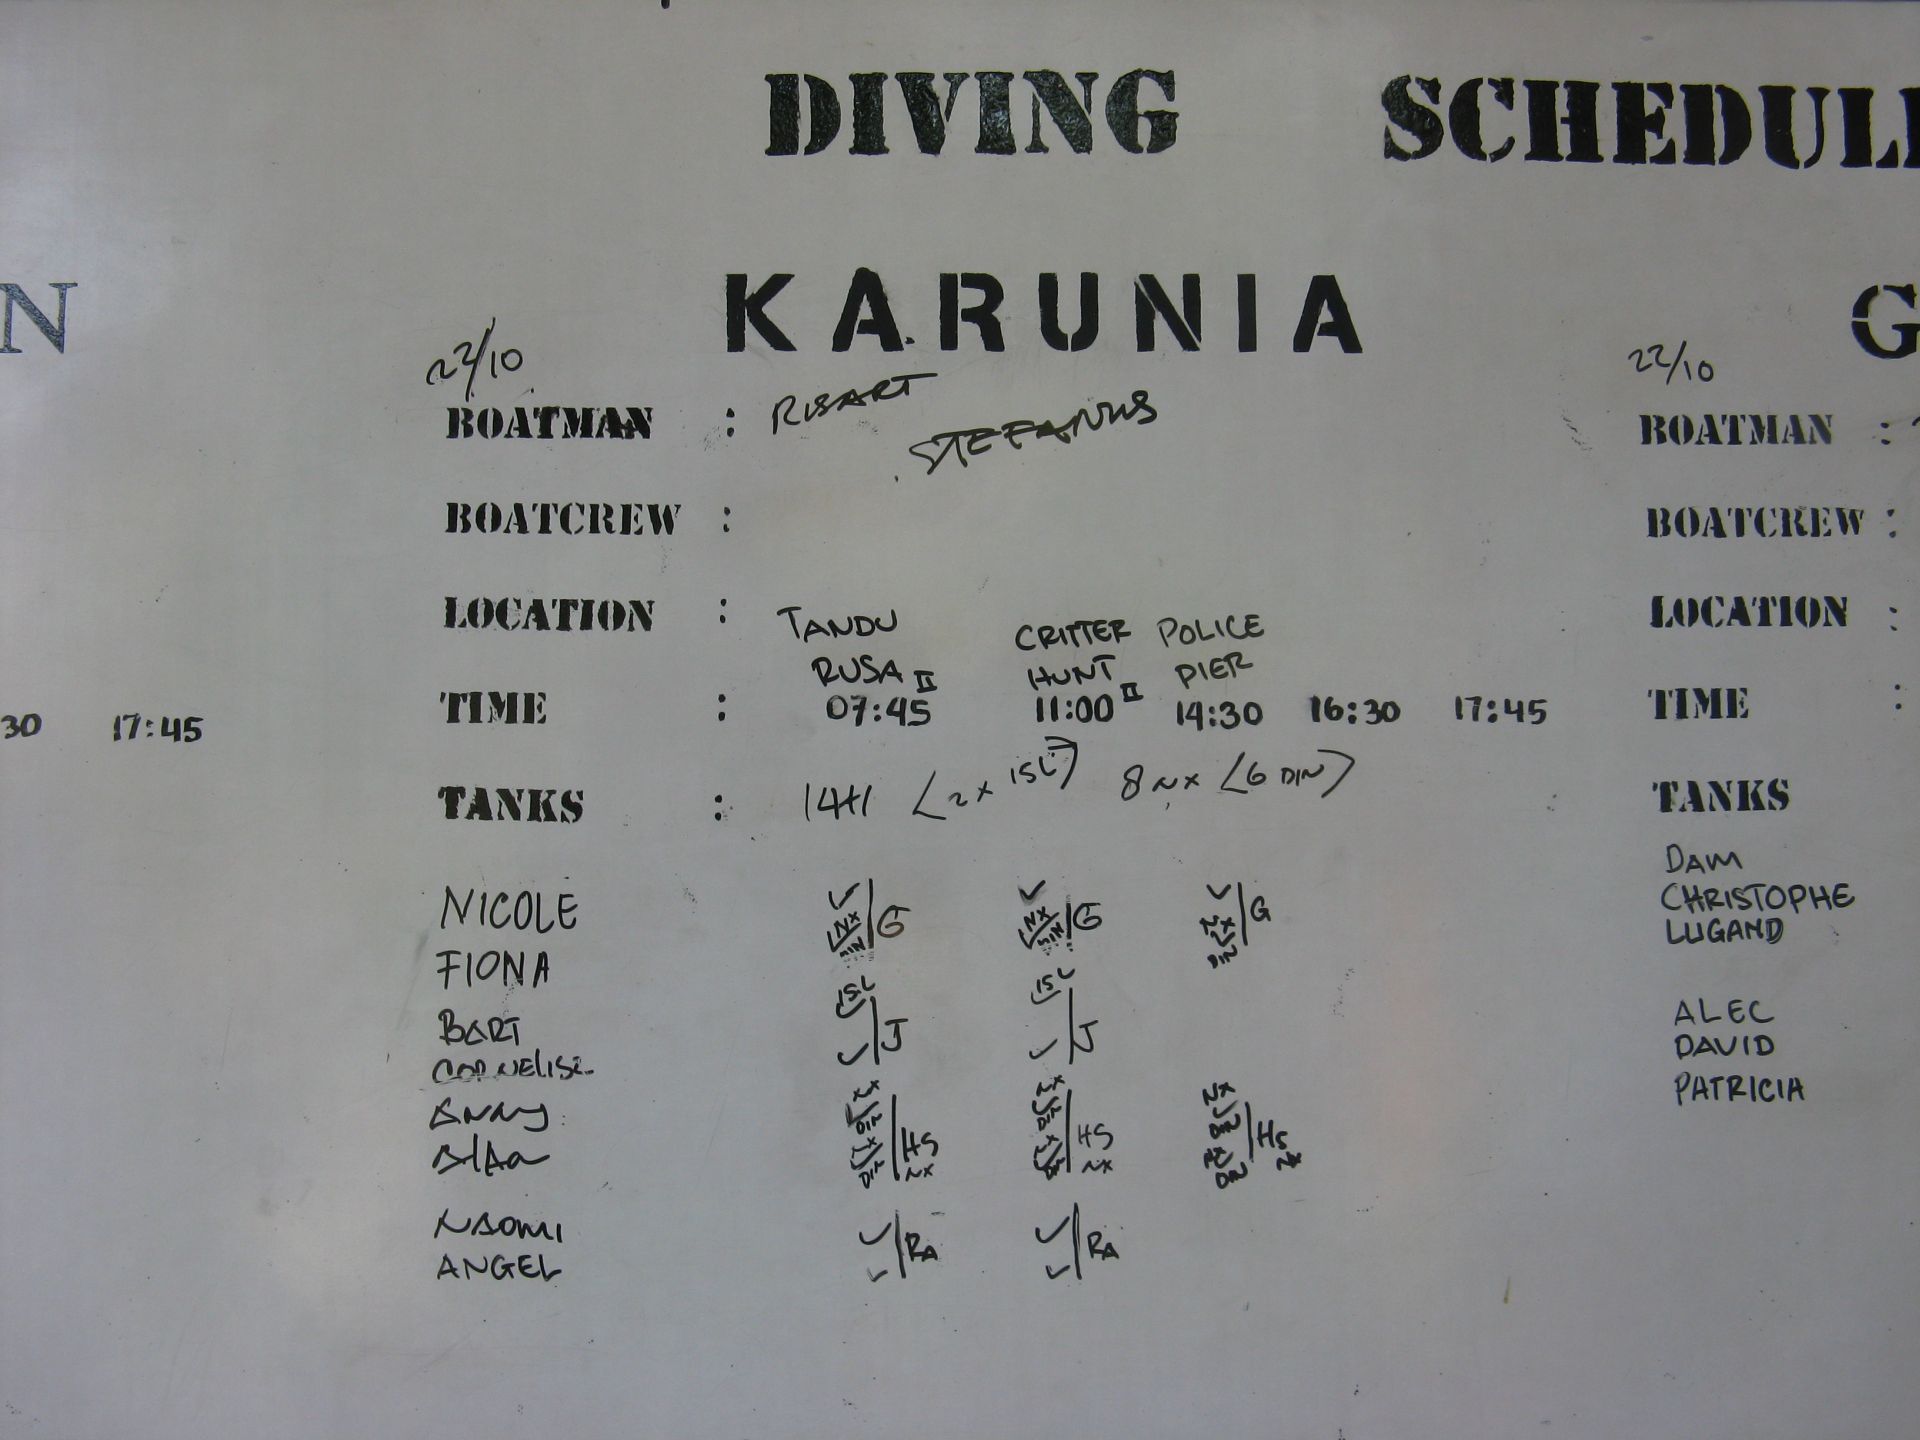 DIVING SCHEDUL
N KARUNIA G
22/10
BOATMAN : RISART
STEFANUS
BOATCREW :
LOCATION : TANDU CRITTER POLICE
RUSA II HUNT II PIER
TIME : 07:45 11:00 14:30 16:30 17:45
TANKS : 14+1 (2 x 15L) 8 NX (6 DIN)
NICOLE ✓ NX MIN / G ✓ NX MIN / G ✓ NX DIN / G
FIONA
BART 15L ✓ / J 15L ✓ / J
✓ ✓
ANNY NX DIN / HS NX DIN / HS NX DIN / HS
DIN NX DIN NX DIN NX
NAOMI ✓ / RA ✓ / RA
ANGEL ✓ ✓
30 17:45
22/10
BOATMAN :
BOATCREW :
LOCATION :
TIME :
TANKS
DAM
CHRISTOPHE
LUGAND
ALEC
DAVID
PATRICIA